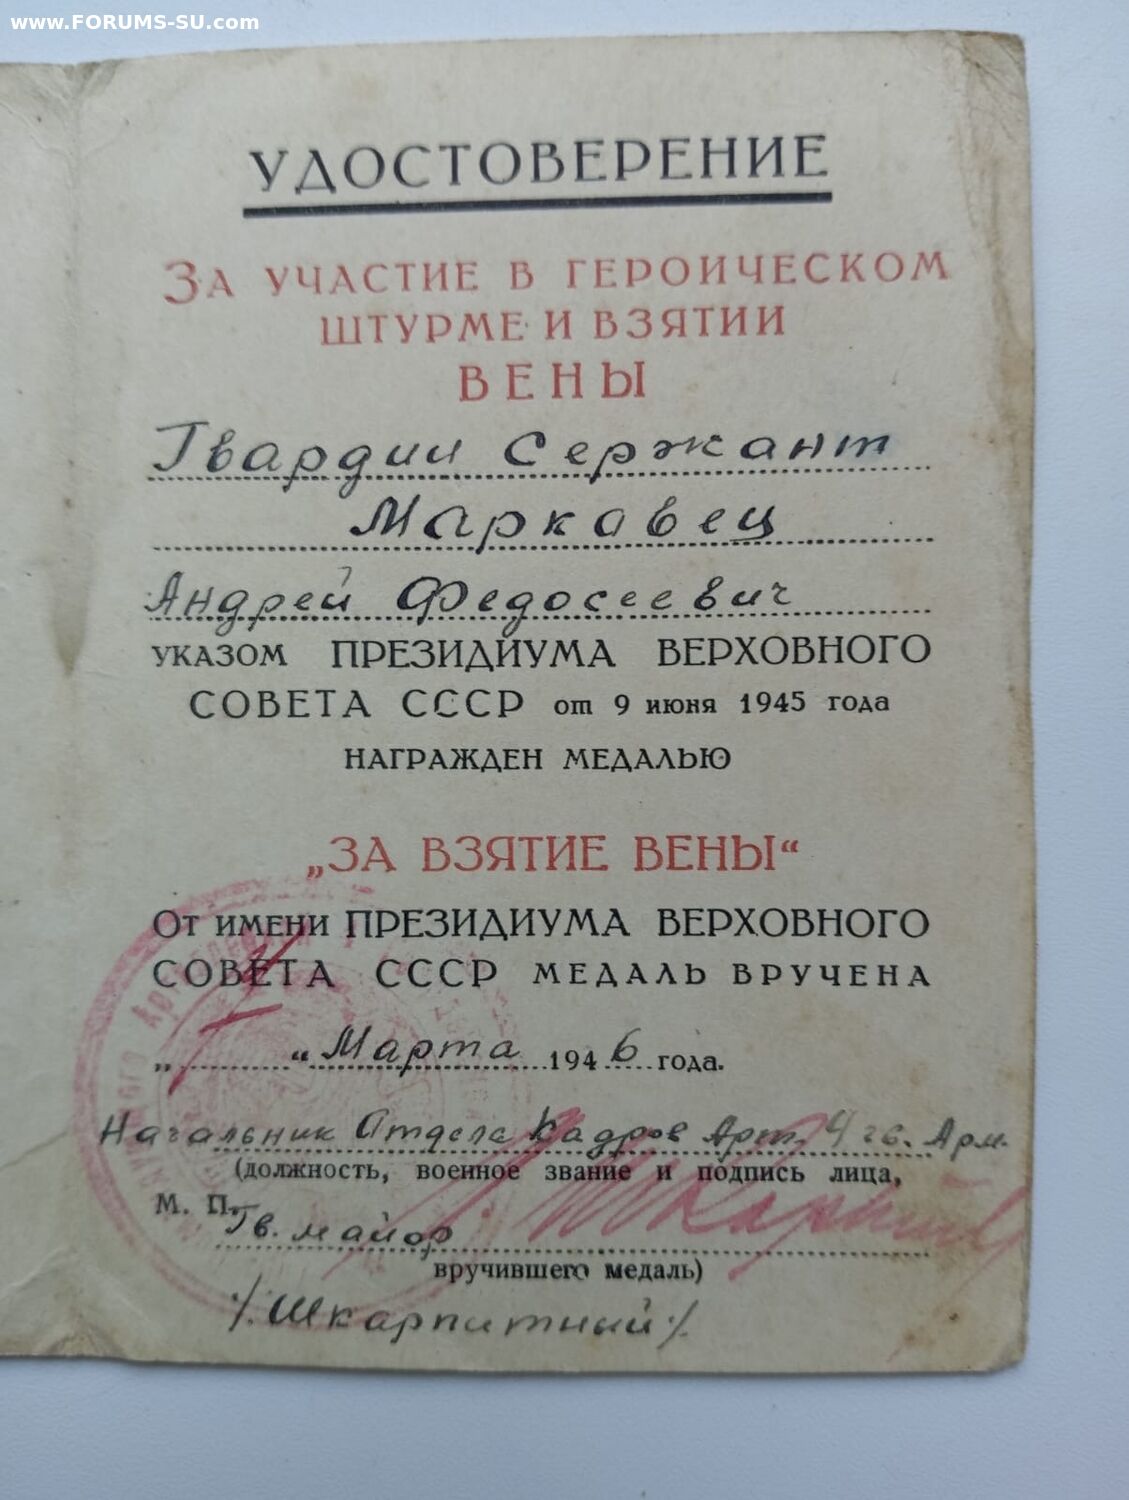 www.FORUMS-SU.com
УДОСТОВЕРЕНИЕ
ЗА УЧАСТИЕ В ГЕРОИЧЕСКОМ
ШТУРМЕ И ВЗЯТИИ
ВЕНЫ
Гвардии Сержант
Маркавец
Андрей Федосеевич
УКАЗОМ ПРЕЗИДИУМА ВЕРХОВНОГО
СОВЕТА СССР от 9 июня 1945 года
НАГРАЖДЕН МЕДАЛЬЮ
„ЗА ВЗЯТИЕ ВЕНЫ“
ОТ ИМЕНИ ПРЕЗИДИУМА ВЕРХОВНОГО
СОВЕТА СССР МЕДАЛЬ ВРУЧЕНА
„ “ Марта 1946 года.
Начальник Отдела Кадров Арт. 4 гв. Арм.
(должность, военное звание и подпись лица,
М. П.
Гв. майор
вручившего медаль)
/. Шкарпитный /.